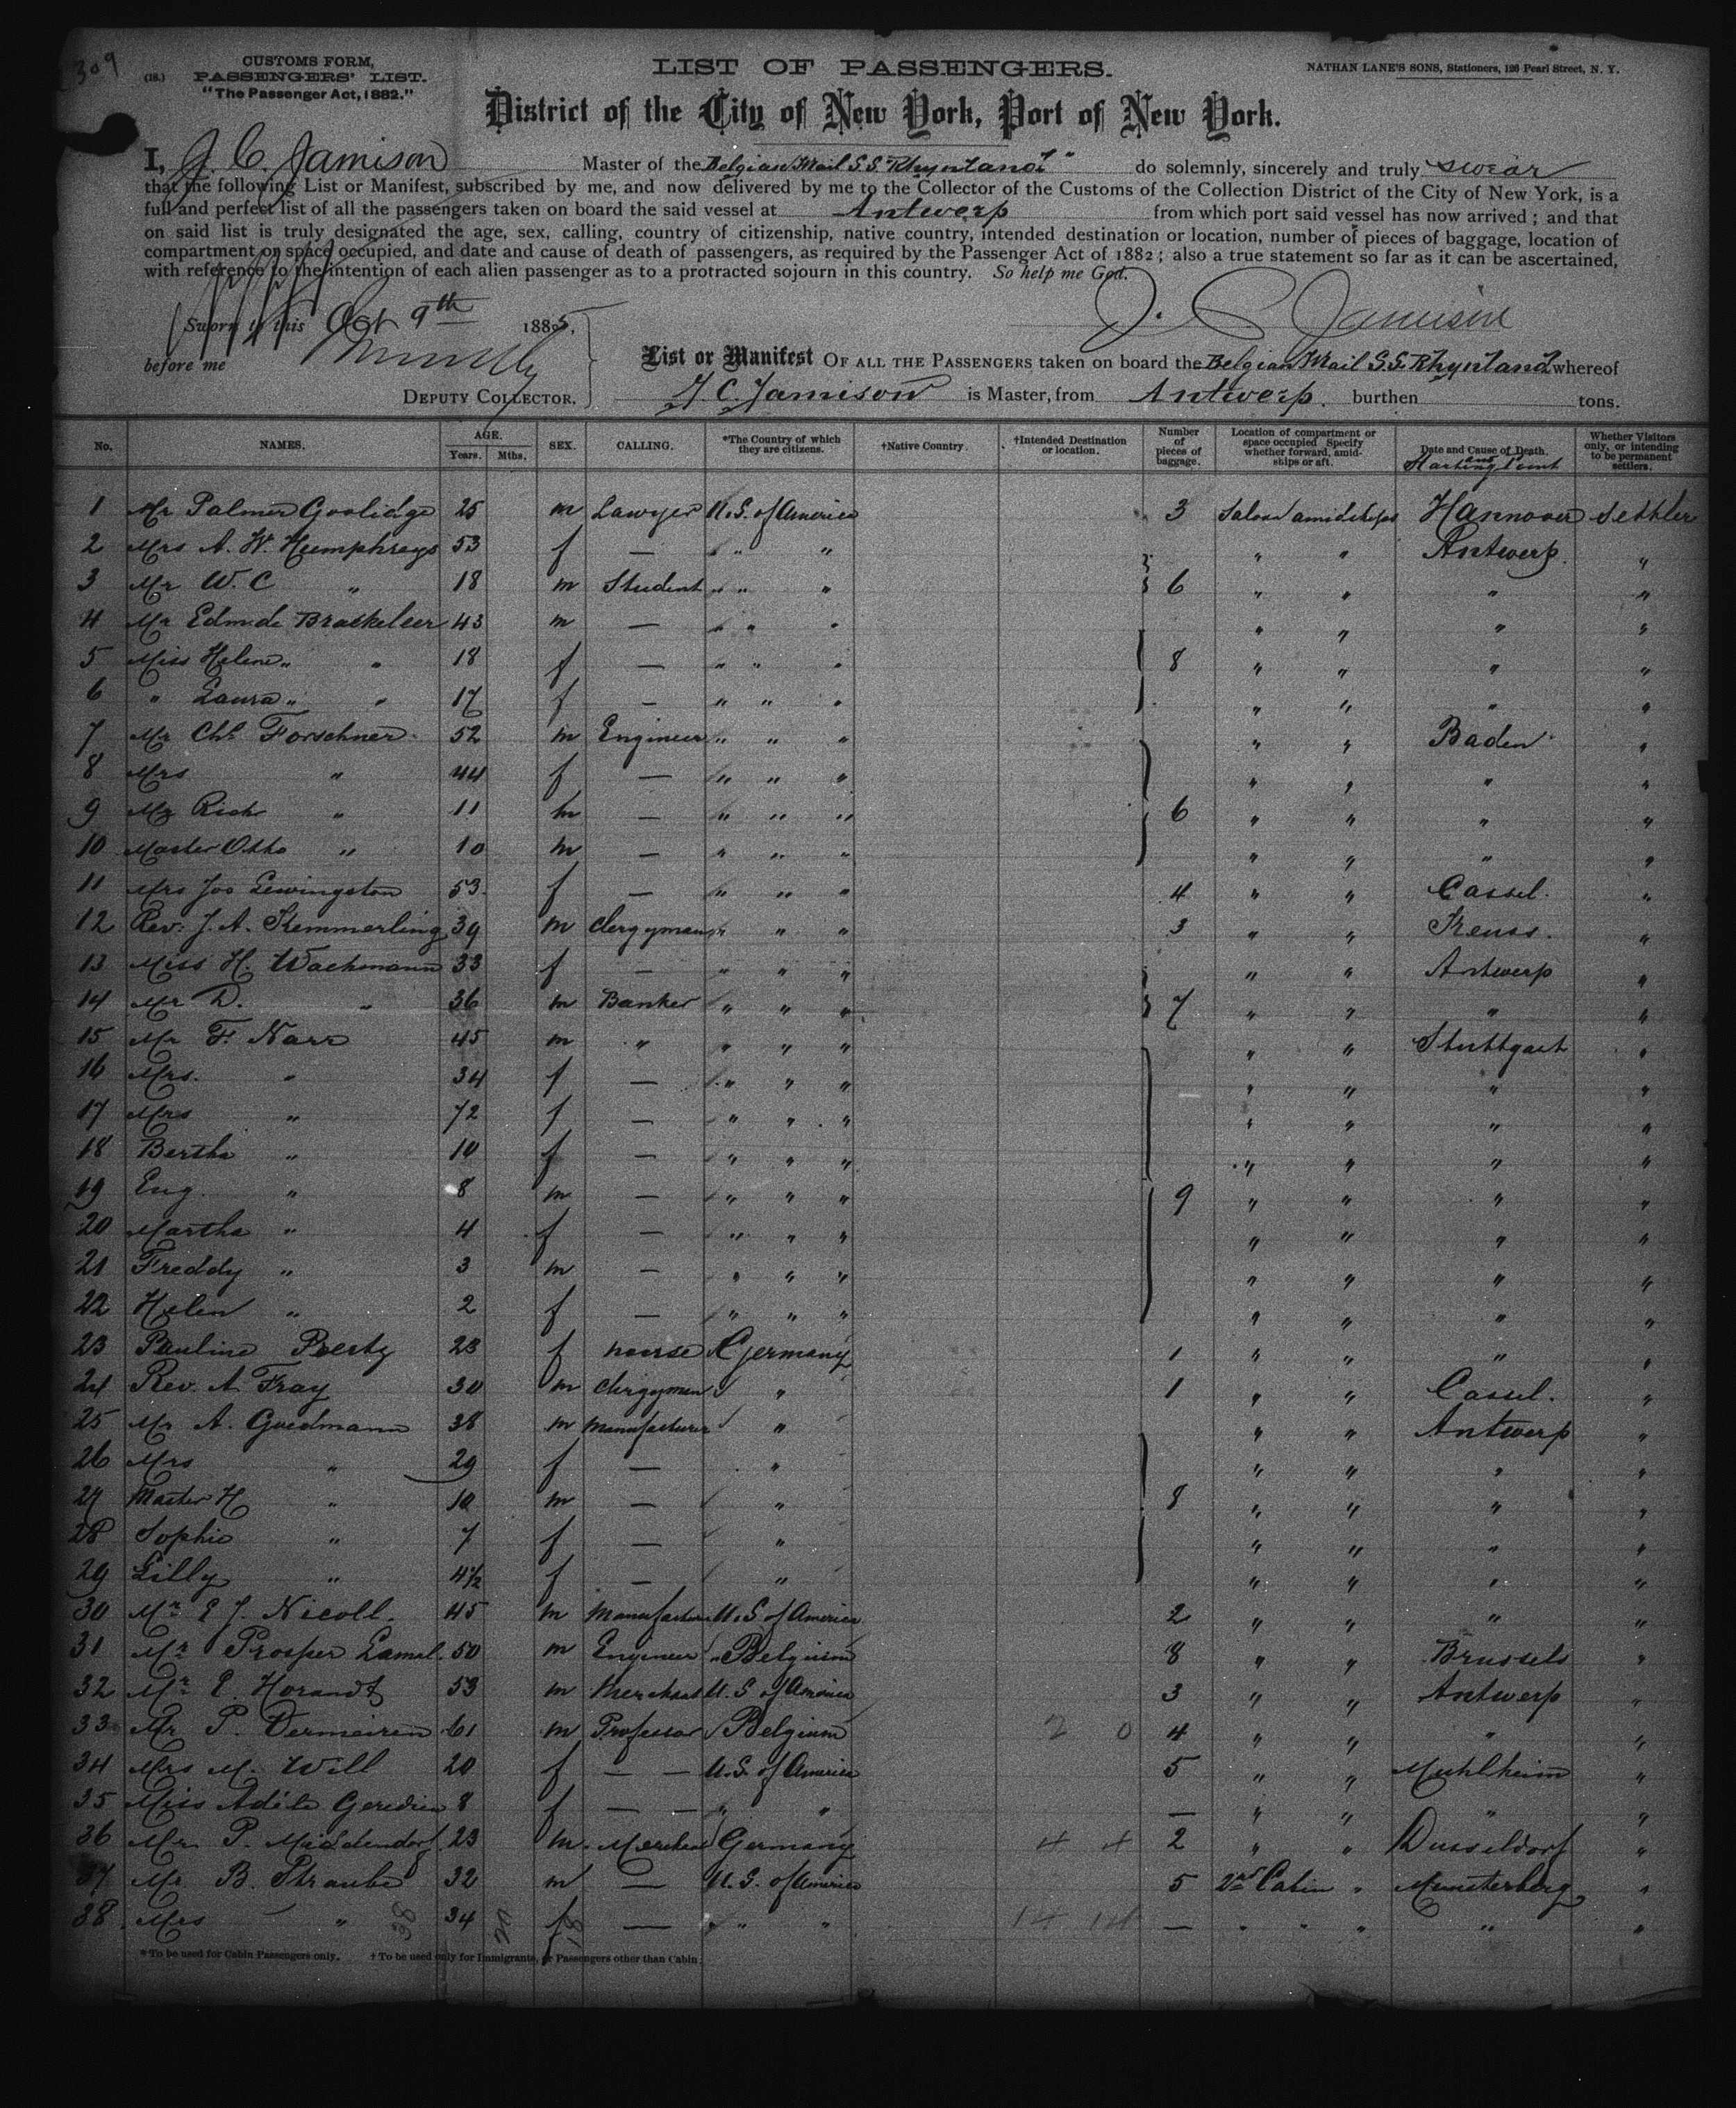 309
CUSTOMS FORM,
(18.) PASSENGERS' LIST.
"The Passenger Act, 1882."
LIST OF PASSENGERS.
NATHAN LANE'S SONS, Stationers, 126 Pearl Street, N. Y.
District of the City of New York, Port of New York.
I, J. C. Jamison Master of the Belgian Mail S.S. "Rhynland" do solemnly, sincerely and truly swear
that the following List or Manifest, subscribed by me, and now delivered by me to the Collector of the Customs of the Collection District of the City of New York, is a
full and perfect list of all the passengers taken on board the said vessel at Antwerp from which port said vessel has now arrived; and that
on said list is truly designated the age, sex, calling, country of citizenship, native country, intended destination or location, number of pieces of baggage, location of
compartment or space occupied, and date and cause of death of passengers, as required by the Passenger Act of 1882; also a true statement so far as it can be ascertained,
with reference to the intention of each alien passenger as to a protracted sojourn in this country. So help me God.
Sworn to this Oct 9th 1885,
J. C. Jamison
before me
DEPUTY COLLECTOR.
List or Manifest OF ALL THE PASSENGERS taken on board the Belgian Mail S.S. Rhynland whereof
J. C. Jamison is Master, from Antwerp. burthen tons.
No. NAMES. AGE. Years. Mths. SEX. CALLING. *The Country of which they are citizens. †Native Country. †Intended Destination or location. Number of pieces of baggage. Location of compartment or space occupied Specify whether forward, amidships or aft. Date and Cause of Death. and Starting Point Whether Visitors only, or intending to be permanent settlers.
1 Mr Palmer Goolidge 25 m Lawyer U.S. of America 3 Saloon amidships Hannover Settler
2 Mrs A. W. Humphreys 53 f — " " " " Antwerp "
3 Mr W. C " 18 m Student " " 6 " " " "
4 Mr Edm de Braekeleer 43 m — " " " " " " "
5 Miss Helene " " 18 f — " " " 8 " " " "
6 " Laura " " 17 f — " " " " " " "
7 Mr Chs Forschner 52 m Engineer " " " " " Baden "
8 Mrs " 44 f — " " " " " " "
9 Mr Rich " 11 m — " " " 6 " " " "
10 Master Otto " 10 m — " " " " " " "
11 Mrs Jos Lewingston 53 f — " " " 4 " " Cassel. "
12 Rev. J. A. Kemmerling 39 m Clergyman " " " 3 " " "
13 Miss H. Wachmann 33 f — " " " " " Antwerp "
14 Mr D. " 36 m Banker " " " 7 " " " "
15 Mr F. Narr 45 m " " " " " " Stuttgart "
16 Mrs. " 34 f — " " " " " " "
17 Mrs " 72 f — " " " " " " "
18 Bertha " 10 f — " " " " " " "
19 Eug. " 8 m — " " " 9 " " " "
20 Martha " 4 f — " " " " " " "
21 Freddy " 3 m — " " " " " " "
22 Helen " 2 f — " " " " " " "
23 Pauline 23 f nourse Germany 1 " " " "
24 Rev. A Fray 30 m Clergyman " 1 " " Cassel. "
25 Mr A. Guedmann 38 m Manufacturer " " " Antwerp "
26 Mrs " 29 f — " " " " "
27 Master H " 10 m — " 8 " " " "
28 Sophie " 7 f — " " " " "
29 Lilly " 4½ f — " " " " "
30 Mr E J. Nicoll. 45 m Manufacturer U.S of America 2 " " " "
31 Mr Prosper Lamal. 50 m Engineer Belgium 8 " " Brussels "
32 Mr E. Horandt 53 m Merchant U.S. of America 3 " " Antwerp "
33 Mr P. Dermeiren 61 m Professor Belgium 2 0 4 " " " "
34 Mrs M. Will 20 f — — U.S. of America 5 " " Muhlheim "
35 Miss Adéle 8 f — — " " — " " " "
36 Mr P. Middendorf 23 m Merchant Germany 4 4 2 " " Dusseldorf "
37 Mr B. Straube 32 m — U.S. of America 5 2nd Cabin " Munsterberg "
38 Mrs " 34 f — " " " 14 — " " " " "
*To be used for Cabin Passengers only. †To be used only for Immigrants, or Passengers other than Cabin.